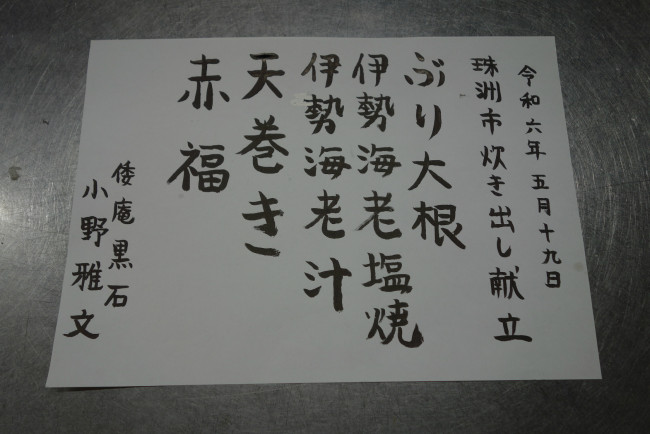 令和六年 五月十九日
珠洲市炊き出し献立
ぶり大根
伊勢海老塩焼
伊勢海老汁
天巻き
赤福
倭庵黒石
小野雅文